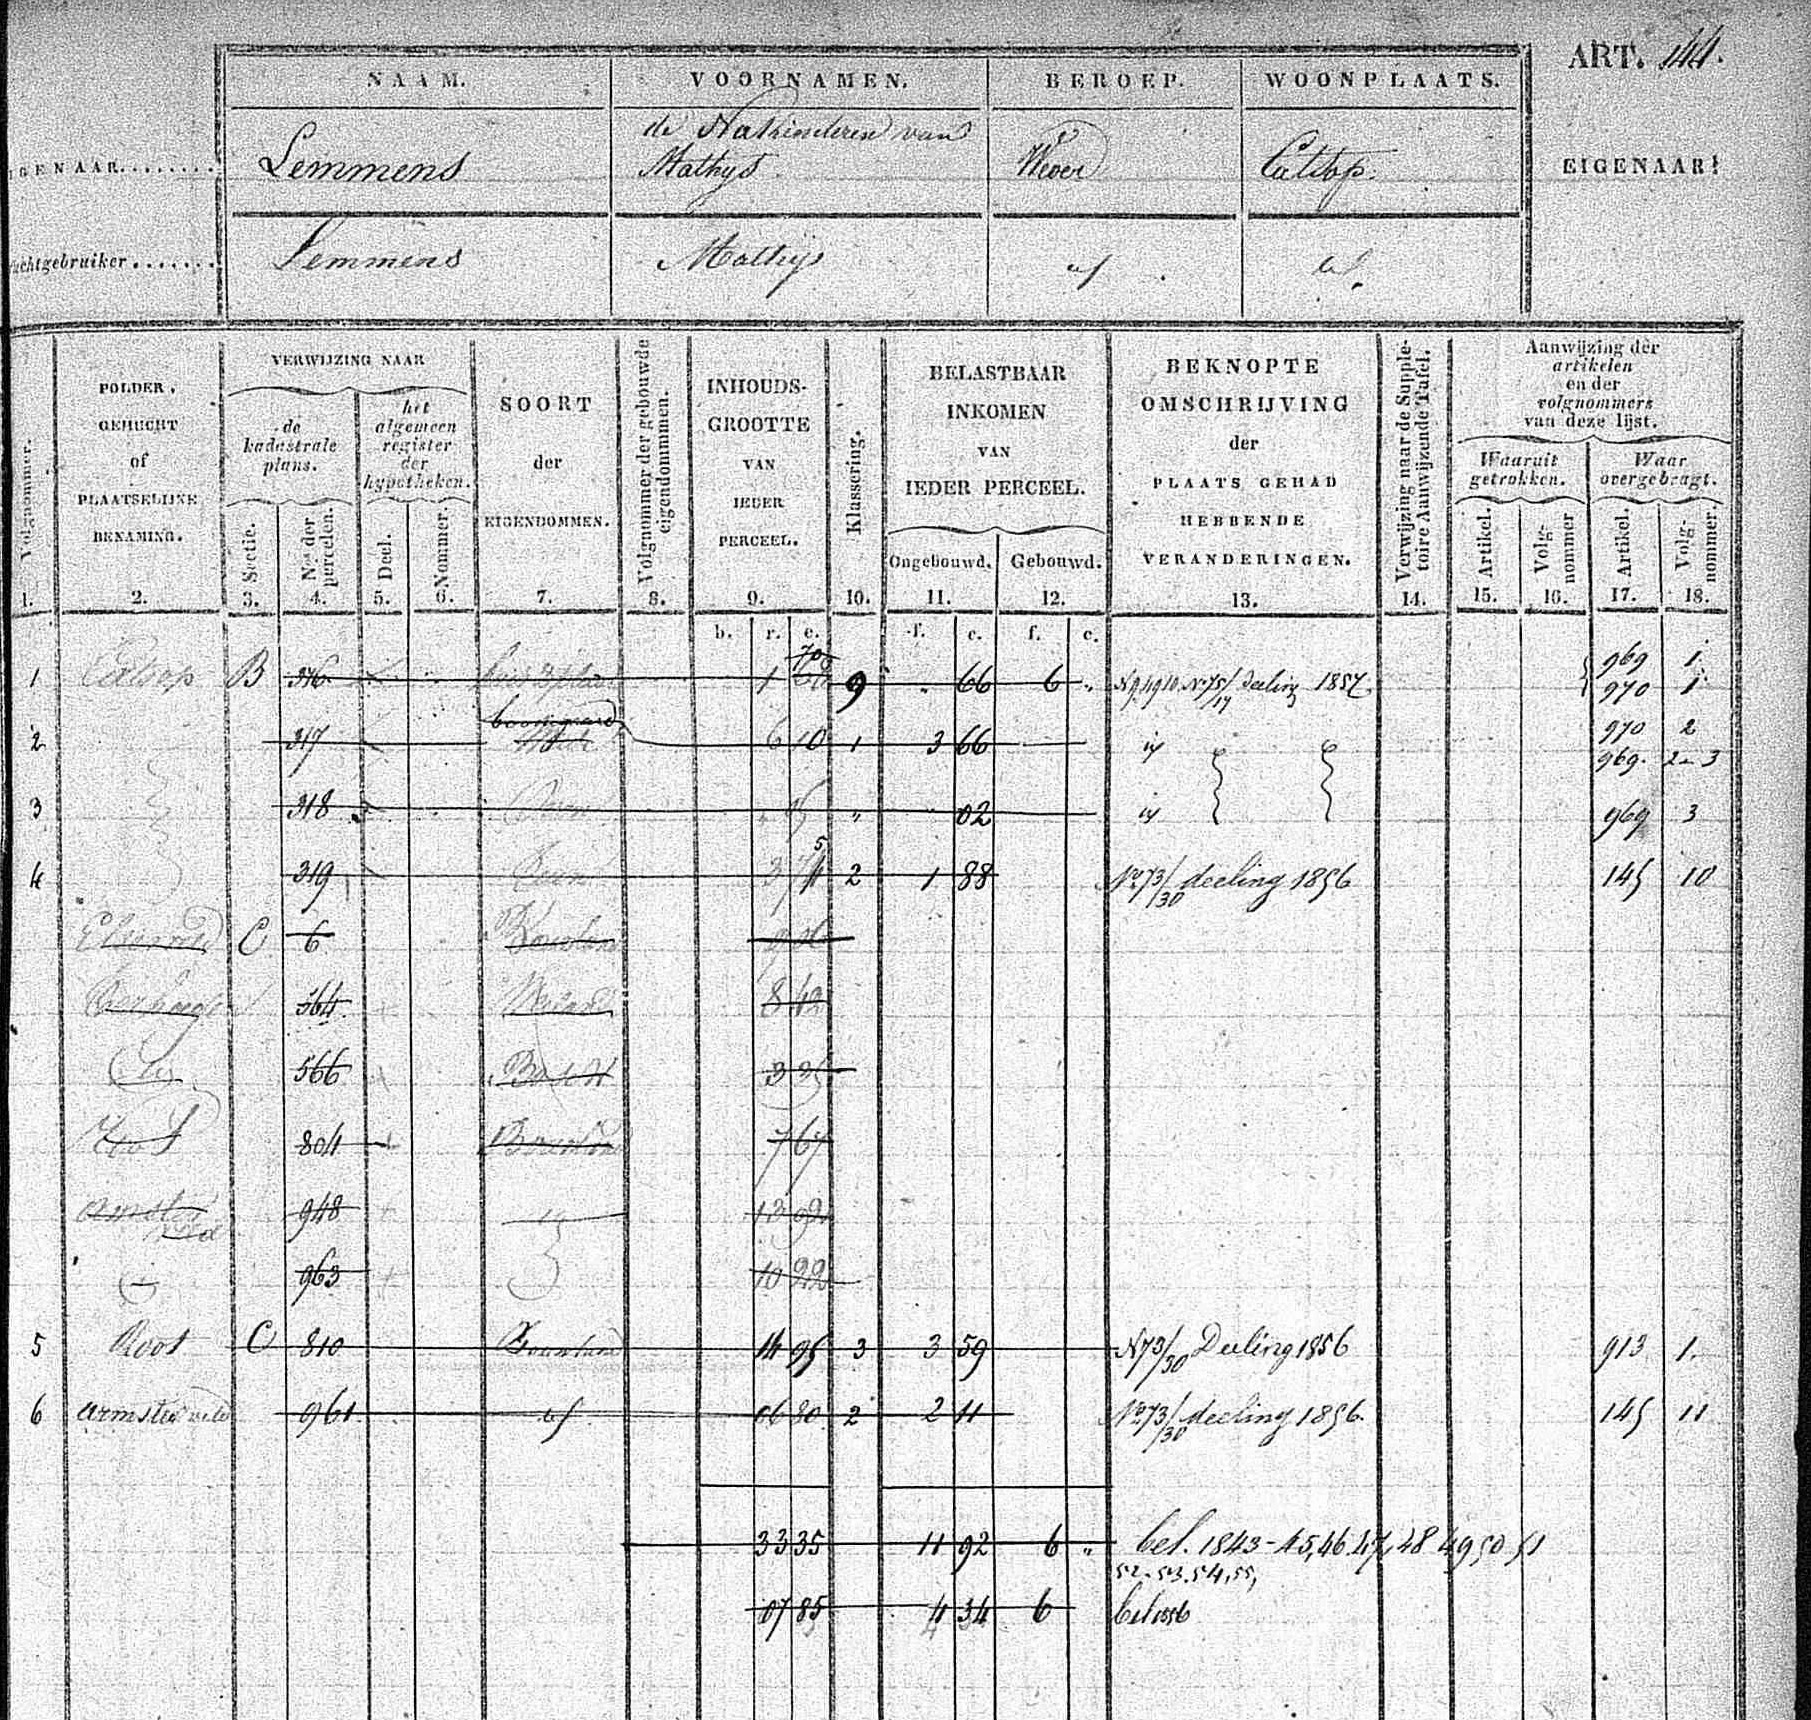 ART. 144.
NAAM. VOORNAMEN. BEROEP. WOONPLAATS.
IGENAAR........ Lemmens de Nakinderen van Mathys Wever Catsop. EIGENAAR!
uchtgebruiker....... Lemmens Mathijs id id
Volgnommer.
POLDER, GEHUCHT of PLAATSELIJKE BENAMING.
VERWIJZING NAAR
de kadastrale plans.
het algemeen register der hypotheken.
Sectie. Nos der percelen. Deel. Nommer.
SOORT der EIGENDOMMEN.
Volgnommer der gebouwde eigendommen.
INHOUDS-GROOTTE VAN IEDER PERCEEL.
Klassering.
BELASTBAAR INKOMEN VAN IEDER PERCEEL.
Ongebouwd. Gebouwd.
BEKNOPTE OMSCHRIJVING der PLAATS GEHAD HEBBENDE VERANDERINGEN.
Verwijzing naar de Suppletoire Aanwijzende Tafel.
Aanwijzing der artikelen en der volgnommers van deze lijst.
Waaruit getrokken. Waar overgebragt.
Artikel. Volg-nommer Artikel. Volg-nommer.
1. 2. 3. 4. 5. 6. 7. 8. 9. 10. 11. 12. 13. 14. 15. 16. 17. 18.
b. r. e. f. c. f. c.
1 Catsop B 316 1 70 9 " 66 6 " deeling 1857 969 1
970 1
2 317 boomgaard 6 10 1 3 66 id 970 2
969. 2 3
3 318 " 02 id 969 3
4 319 Tuin 3 2 1 88 No 73/30 deeling 1856 145 10
C 6 Bouwland
564 Weiland 8 42
566 Bosch 3 35
Root 804 Bouwland 7 67
Armst veld 948 id 13 02
963 10 22
5 Root C 810 Bouwland 14 95 3 3 59 N 73/30 Deeling 1856 913 1.
6 armster veld 961 id 06 80 2 2 11 No 73/30 deeling 1856. 145 11
33 35 11 92 6 " bel. 1843-45,46.47,48 49 50 51
52.53.54,55,
07 85 4 34 6 bel 1856